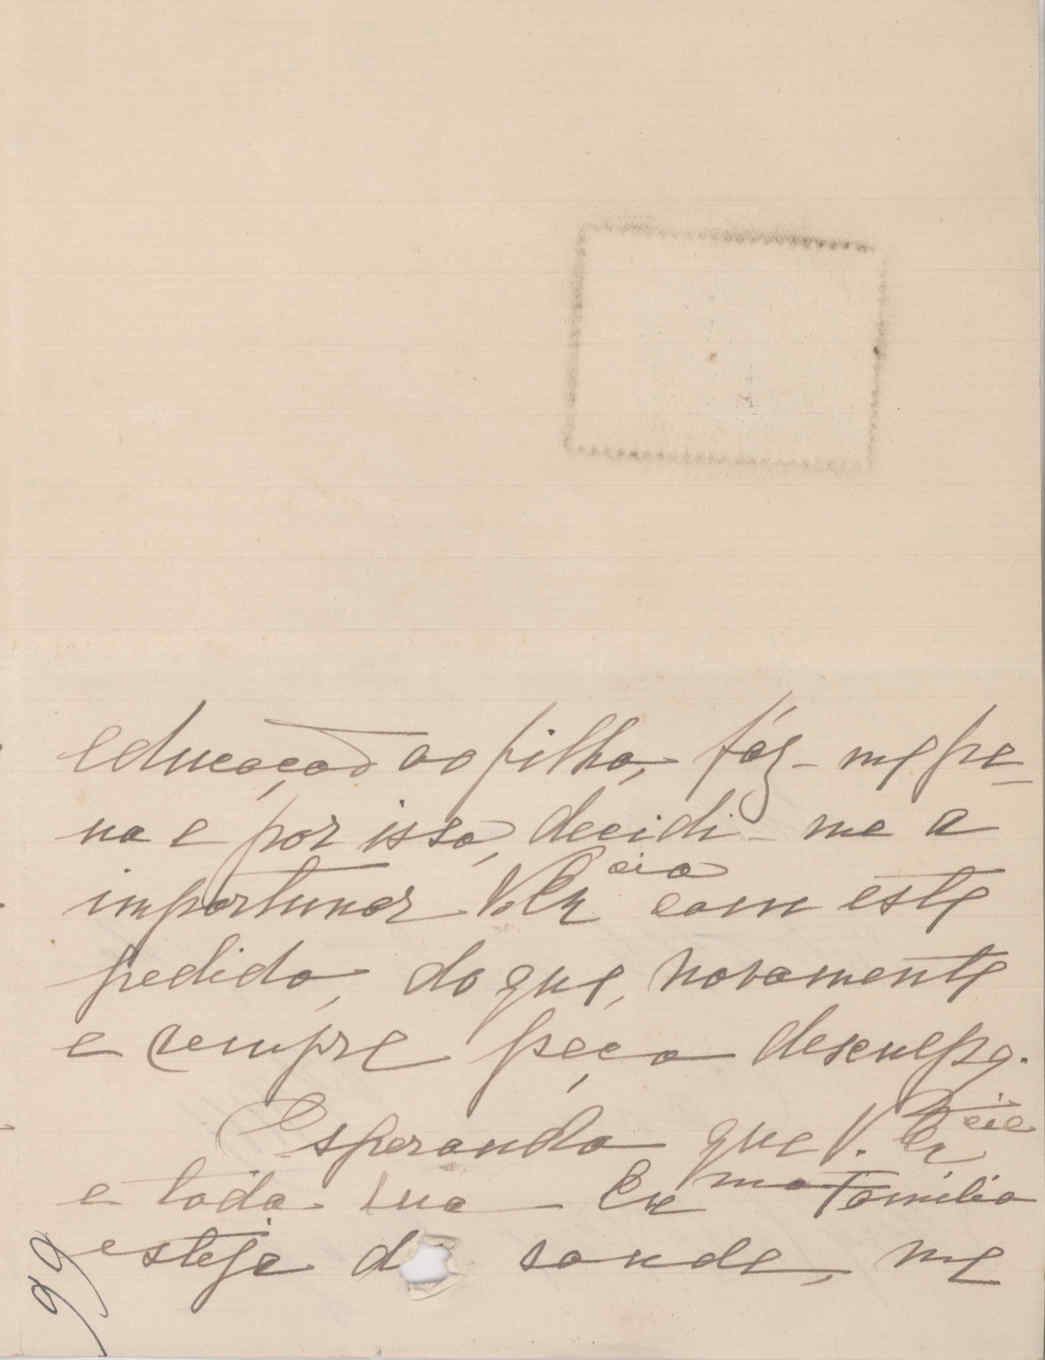 educação ao filho, fáz-me pe-
na e por isso, decidi-me a
importunar V. Ex cia com este
pedido, do que, novamente
e sempre peço desculpa.
Esperando que V. Ex cia
e toda sua Ex ma familia
esteja de saude, me
99